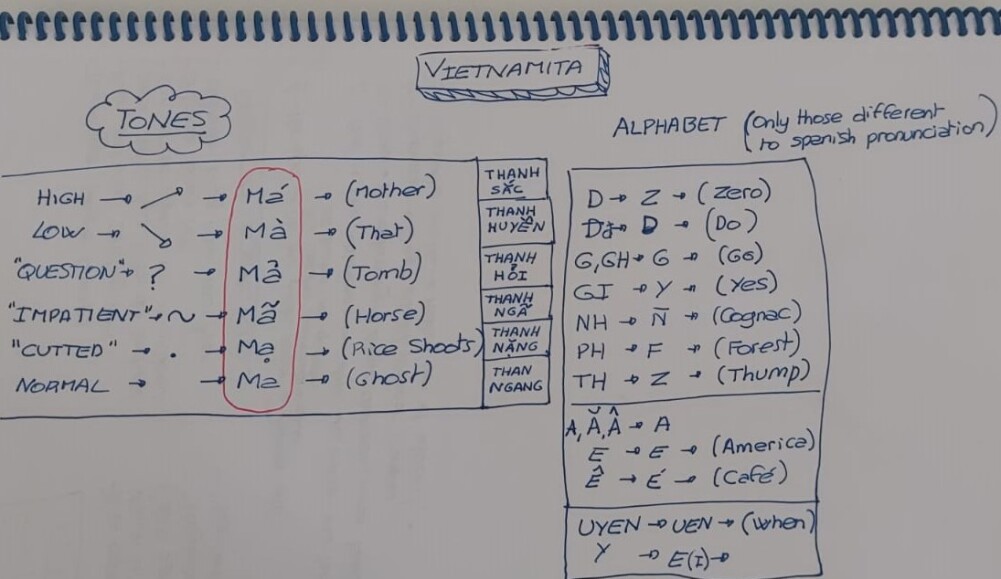 VIETNAMITA
TONES
HIGH → Má → (Mother)
LOW → → Mà → (That)
"QUESTION" → ? → Mả → (Tomb)
"IMPATIENT" → ~ → Mã → (Horse)
"CUTTED" → . → Mạ → (Rice Shoots)
NORMAL → → Ma → (Ghost)
THANH SẮC
THANH HUYỀN
THANH HỎI
THANH NGÃ
THANH NẶNG
THAN NGANG
ALPHABET (Only those different
to spanish pronunciation)
D → Z → (Zero)
Đ → D → (Do)
G, GH → G → (Go)
GI → Y → (Yes)
NH → Ñ → (Cognac)
PH → F → (Forest)
TH → Z → (Thump)
A, Ă, Â → A
E → E → (America)
Ê → É → (Café)
UYEN → UEN → (When)
Y → E(I) →